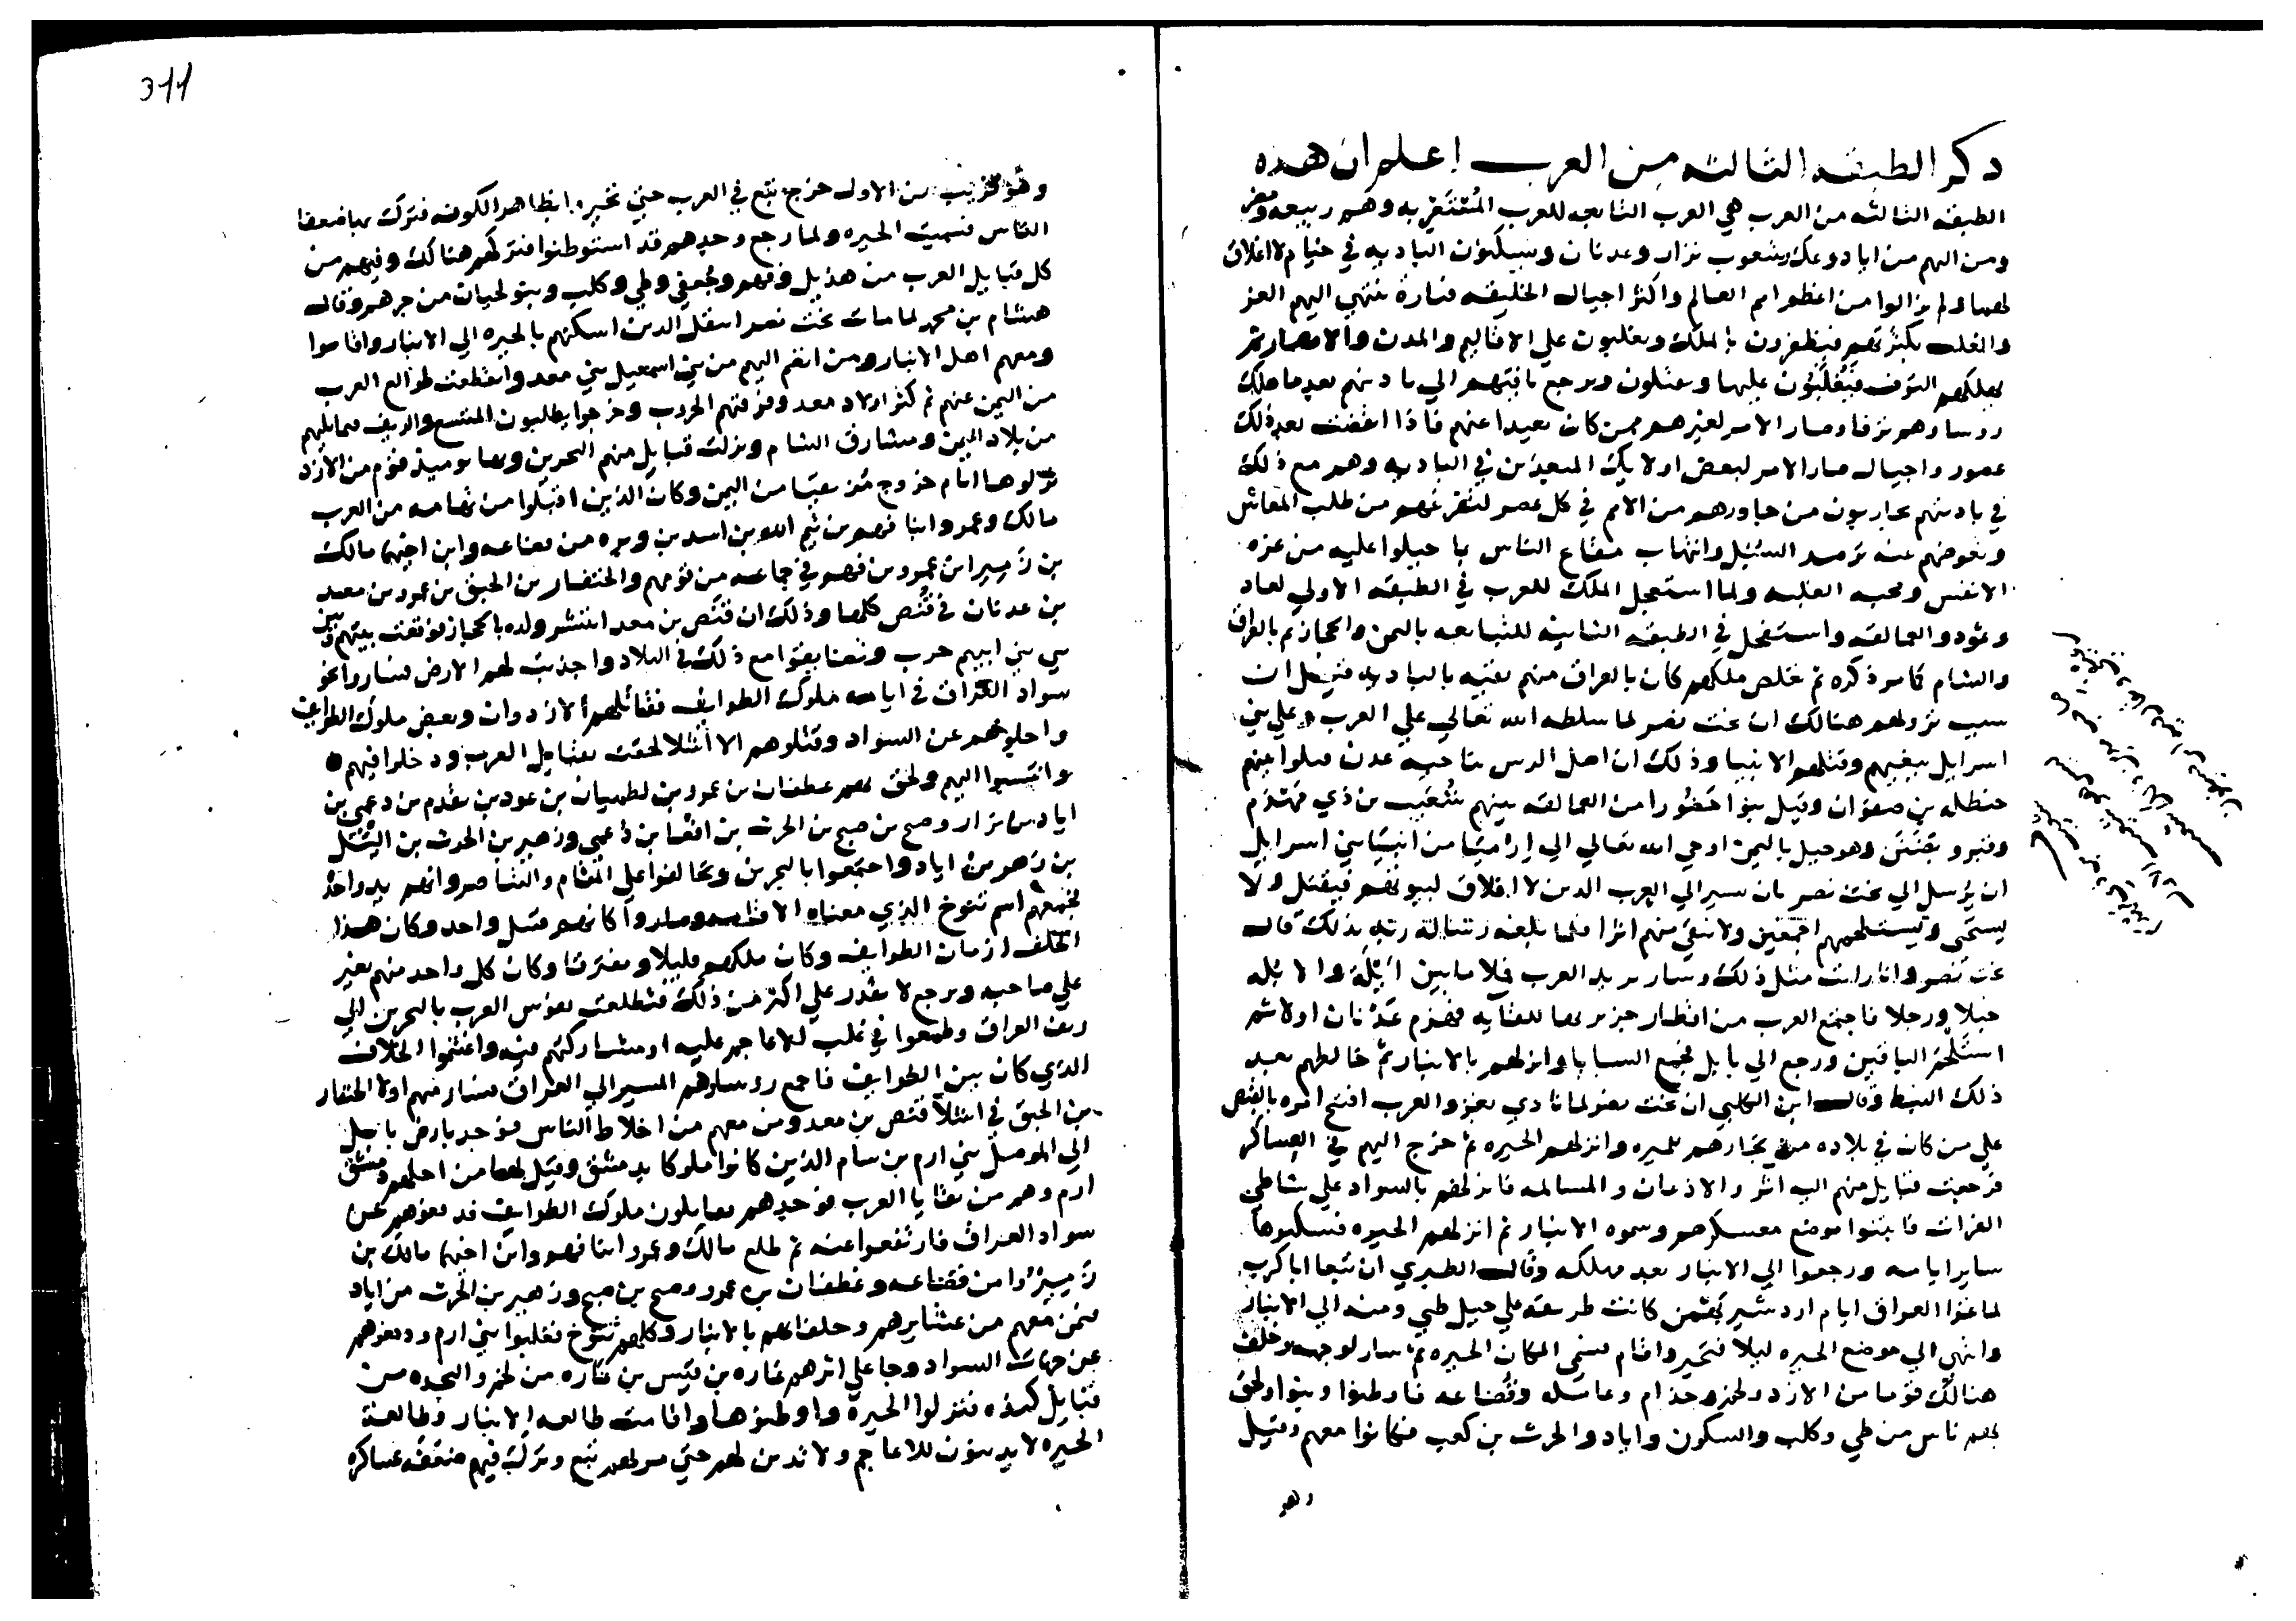 ذكر الطبقه الثالثه من العرب اعلم ان هذه
الطبقه الثالثه من العرب هي العرب التابعه للعرب المتنقزيه وهم ربيعه ومضر
ومن اليهم من اياد وعك وشعوب نزار وعدنان ويسكنون الباديه في خيام لا اغلاق
لها ولم يزالوا من اعظم امم العالم واكثر اجيال الخليقه فتارة ينتهي اليهم العز
والغلب بكثرتهم فيظفرون بالملك ويغلبون علي الاقاليم والمدن والامصار ثم
يهلكهم الترف فيغلبون عليها ويقتلون ويرجع باقيهم الي باديتهم بعد ما هلك
روساوهم ترفا وصار الامر لغيرهم ممن كان بعيدا عنهم فاذا انقضت بعد ذلك
عصور واجيال صار الامر لبعض اولايك المبعدين في الباديه وهم مع ذلك
في باديتهم يحاربون من جاورهم من الامم في كل عصر لتفرغهم من طلب المعاش
وتعوضهم عنه ترصد السبيل وانتهاب متاع الناس بما جبلوا عليه من عزه
الانفس ومحبه الغلبه ولما استفحل الملك للعرب في الطبقه الاولي لعاد
وثمود والعمالقه واستفحل في الطبقه الثانيه للتبابعه باليمن والحجاز ثم بالعراق
والشام كما مر ذكره ثم تقلص ملكهم كان بالعراق منهم بقيه بالباديه فقيل ان
سبب نزولهم هنالك ان بخت نصر لما سلطه الله تعالي علي العرب وعلي بني
اسرايل ببغيهم وقتلهم الانبيا وذلك ان اهل الرس بناحيه عدن قتلوا نبيهم
حنظله بن صفوان وقيل بنوا حضورا من العمالقه نبيهم شعيب بن ذي مهدم
وقبره بحضن وهو جبل باليمن اوحي الله تعالي الي ارميا من انبيا بني اسرايل
ان يرسل الي بخت نصر بان يسير الي العرب الذين لا اغلاق لبيوتهم فيقتل ولا
يستحي ويستلحمهم اجمعين ولا يبقي منهم اثرا فلما بلغه رسالة ربه بذلك قال
بخت نصر وانا رايت مثل ذلك وسار يريد العرب فملا ما بين ايلة والابله
خيلا ورجلا فاجتمع العرب من اقطار جزيرتها للقايه فهزم عدنان اولا ثم
استلحم الباقين ورجع الي بابل فجمع السبايا وانزلهم بالانبار ثم خالطهم بعد
ذلك النبط وقال ابن الكلبي ان بخت نصر لما نادي بغزو العرب افتتح امره بالقبض
علي من كان في بلاده من تجارهم للميره وانزلهم الحيره ثم خرج اليهم في العساكر
فرجعت قبايل منهم اليه اثر والاذعان والمسالمه فانزلهم بالسواد علي شاطي
الفرات فابتنوا موضع معسكرهم وسموه الانبار ثم انزلهم الحيره فسكنوها
ساير ايامه ورجعوا الي الانبار بعد مهلكه وقال الطبري ان تبعا ابا كرب
لما غزا العراق ايام اردشير بهمن كانت طريقه علي جبل طي ومنه الي الانبار
وانتهي الي موضع الحيره ليلا فتحير واقام فسمي المكان الحيره ثم سار لوجهه وخلف
هنالك قوما من الازد ولخم وجذام وعامله وقضاعه فاوطنوا وبنوا ولحق
بهم ناس من طي وكلب والسكون واياد والحرث بن كعب فكانوا معهم وقيل
وهو
311
وهو قريب من الاول خرج تبع في العرب حتي تحيره بظاهر الكوفه فترك بها ضعفا
الناس فسميت الحيره ولما رجع وجدهم قد استوطنوا فتركهم هنالك وفيهم من
كل قبايل العرب من هذيل وفهم وجعفي وطي وكلب وبنو لحيان من جرهم وقال
هشام بن محمد لما مات بخت نصر انتقل الذين اسكنهم بالحيره الي الانبار واقاموا
ومعهم اهل الانبار ومن انضم اليهم من بني اسمعيل بني معد وانقطعت طوالع العرب
من اليمن عنهم ثم كثر اولاد معد وفرقتهم الحروب وخرجوا يطلبون المتسع والريف فيما يليهم
من بلاد اليمن ومشارق الشام ونزلت قبايل منهم البحرين وبها يوميذ قوم من الازد
نزلوها ايام خروج مزيقيا من اليمن وكان الذين اقبلوا من تهامه من العرب
مالك وعمرو ابنا فهم بن تيم الله بن اسد بن وبره من قضاعه وابن اخيهما مالك
بن زهير ابن عمرو بن فهم في جماعه من قومهم والحنفار بن الحيق بن عمرو بن معد
بن عدنان في قنص كلها وذلك ان قنص بن معد انتشر ولده بالحجاز فوقعت بينهم وبين
بني ابيهم حرب وتضايقوا مع ذلك في البلاد واجدبت لهم الارض فساروا نحو
سواد العراق في ايامه ملوك الطوايف فقاتلهم الازدوان وبعض ملوك الطوايف
واجلوهم عن السواد وقتلوهم الا اشلا لحقت بقبايل العرب ودخلوا فيهم
وانتسبوا اليهم ولحق بهم غطفان بن عمرو بن لطميان بن عود بن يقدم بن دعمي بن
اياد بن نزار وصبح بن صبح بن الحرث بن افصا بن دعمي وزهير بن الحرث بن الشلل
بن زهر من اياد واجتمعوا بالبحرين وتحالفوا علي المقام والتناصر وانهم يد واحده
فجمعهم اسم تنوخ الذي معناه الاقامه وصاروا كانهم قبيل واحد وكان هذا
الحلف ازمان الطوايف وكان ملكهم قليلا ومفترقا وكان كل واحد منهم يغير
علي صاحبه ويرجع لا يقدر علي اكثر من ذلك فتطلعت نفوس العرب بالبحرين الي
ريف العراق وطمعوا في غلب الاعاجم عليه او مشاركتهم فيه واغتنموا الخلاف
الذي كان بين الطوايف فاجمع روساوهم المسير الي العراق فسار منهم اولا الحنفار
بن الحيق في اشلا قنص بن معد ومن معهم من اخلاط الناس فوجد بارض بابل
الي الموصل بني ارم بن سام الذين كانوا ملوكا بدمشق وقيل لها من اجلهم دمشق
ارم وهم من بقايا العرب فوجدهم يقاتلون ملوك الطوايف فدفعوهم عن
سواد العراق فارتفعوا عنه ثم طلع مالك وعمرو ابنا فهم وابن اخيهما مالك بن
زهير من قضاعه وغطفان بن عمرو وصبح بن صبح وزهير بن الحرث من اياد
فيمن معهم من عشايرهم وحلفايهم بالانبار وكلهم تنوخ فغلبوا بني ارم ودفعوهم
عن جهات السواد وجا علي اثرهم نماره بن قيس بن نماره من لخم والنجده من
قبايل كنده فنزلوا الحيره واوطنوها واقامت طالعه الانبار وطالعة
الحيره لا يدينون للاعاجم ولا تدين لهم حتي مر بهم تبع وترك فيهم ضعفه عساكره